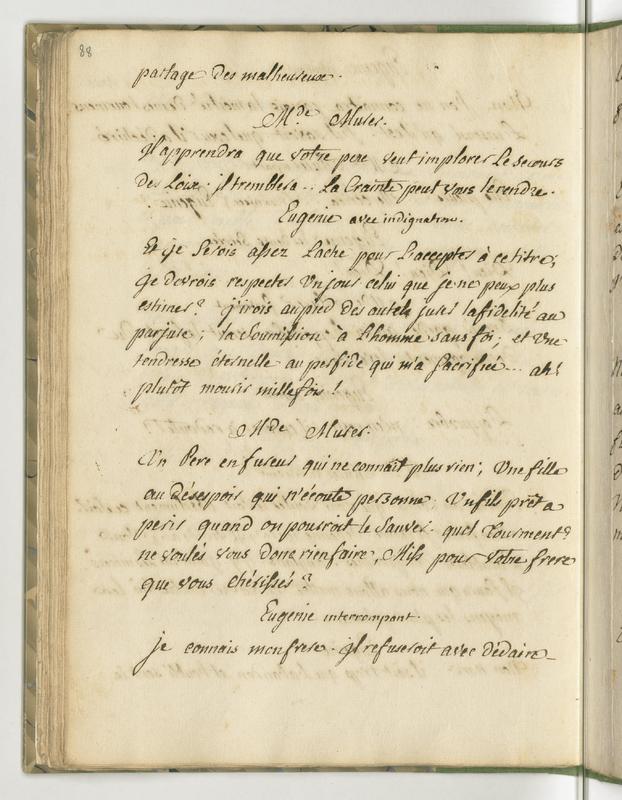 88
partage des malheureux.
M.de Murer.
Il apprendra que votre pere veut implorer le secours
des Loix. il tremblera.. La Crainte peut vous le rendre.
Eugenie avec indignation.
Et je serois assez Lache pour L'accepter à ce titre;
je devrois respecter un jour celui que je ne peux plus
estimer? j'irois au pied des autels jurer la fidelité au
parjure; la soumission à L'homme sans foi; et une
tendresse éternelle au perfide qui m'a sacrifiée... ah!
plutôt mourir mille fois!
Mde Murer.
Un Pere en fureur qui ne connait plus rien; Une fille
au désespoir qui n'écoute personne. Un fils prêt a
perir quand on pourroit le sauver. quel Tourment?
ne voulés vous donc rien faire, Miss pour votre frere
que vous chérissés?
Eugenie interrompant.
je connais mon frere. Il refuseroit avec dédain